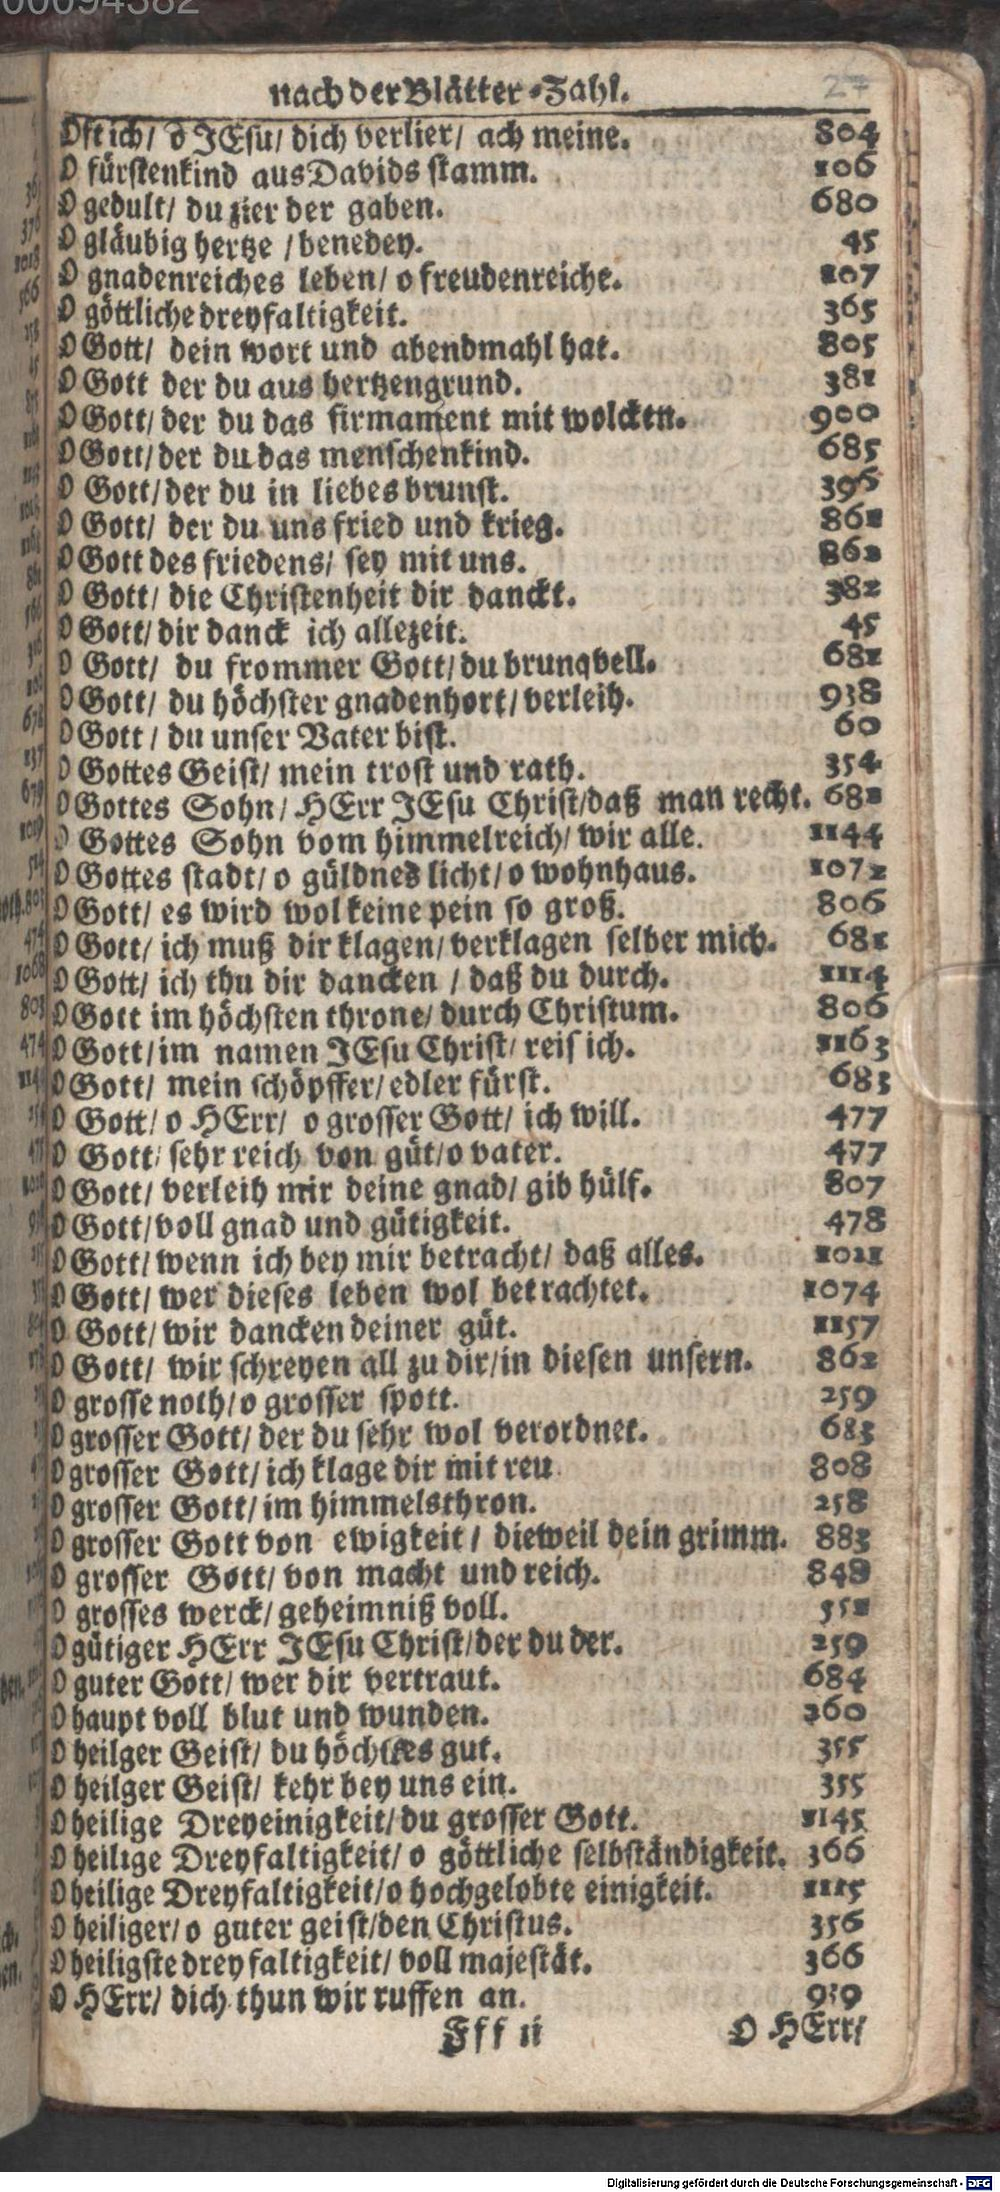 00094382
nach der Blätter-Zahl. 27
Oft ich/ ô JEsu/ dich verlier/ ach meine. 804
O fürstenkind aus Davids stamm. 106
O gedult/ du zier der gaben. 680
O gläubig hertze / benedey. 45
O gnadenreiches leben/ o freudenreiche. 107
O göttliche dreyfaltigkeit. 365
O Gott/ dein wort und abendmahl hat. 805
O Gott der du aus hertzengrund. 381
O Gott/ der du das firmament mit wolcken. 900
O Gott/ der du das menschenkind. 685
O Gott/ der du in liebesbrunst. 396
O Gott/ der du uns fried und krieg. 861
O Gott des friedens/ sey mit uns. 862
O Gott/ die Christenheit dir danckt. 382
O Gott/ dir danck ich allezeit. 45
O Gott/ du frommer Gott/ du brunqvell. 681
O Gott/ du höchster gnadenhort/ verleih. 938
O Gott / du unser Vater bist. 60
O Gottes Geist/ mein trost und rath. 354
O Gottes Sohn/ HErr JEsu Christ/ daß man recht. 682
O Gottes Sohn vom himmelreich/ wir alle. 1144
O Gottes stadt/ o güldnes licht/ o wohnhaus. 1072
O Gott/ es wird wol keine pein so groß. 806
O Gott/ ich muß dir klagen/ verklagen selber mich. 681
O Gott/ ich thu dir dancken / daß du durch. 1114
O Gott im höchsten throne/ durch Christum. 806
O Gott/ im namen JEsu Christ/ reis ich. 1163
O Gott/ mein schöpffer/ edler fürst. 683
O Gott/ o HErr/ o grosser Gott/ ich will. 477
O Gott/ sehr reich von güt/ o vater. 477
O Gott/ verleih mir deine gnad/ gib hülf. 807
O Gott/ voll gnad und gütigkeit. 478
O Gott/ wenn ich bey mir betracht/ daß alles. 1021
O Gott/ wer dieses leben wol betrachtet. 1074
O Gott/ wir dancken deiner güt. 1157
O Gott/ wir schreyen all zu dir/ in diesen unsern. 862
O grosse noth/ o grosser spott. 259
O grosser Gott/ der du sehr wol verordnet. 683
O grosser Gott/ ich klage dir mit reu 808
O grosser Gott/ im himmelsthron. 258
O grosser Gott von ewigkeit / dieweil dein grimm. 883
O grosser Gott/ von macht und reich. 848
O grosses werck/ geheimniß voll.
O gütiger HErr JEsu Christ/ der du der. 259
O guter Gott/ wer dir vertraut. 684
O haupt voll blut und wunden. 260
O heilger Geist/ du höchstes gut. 355
O heilger Geist/ kehr bey uns ein. 355
O heilige Dreyeinigkeit/ du grosser Gott. 1145
O heilige Dreyfaltigkeit/ o göttliche selbständigkeit. 366
O heilige Dreyfaltigkeit/ o hochgelobte einigkeit. 1115
O heiliger/ o guter geist/ den Christus. 356
O heiligste dreyfaltigkeit/ voll majestät. 366
O HErr/ dich thun wir ruffen an. 939
Fff ii O HErr/
Digitalisierung gefördert durch die Deutsche Forschungsgemeinschaft - DFG